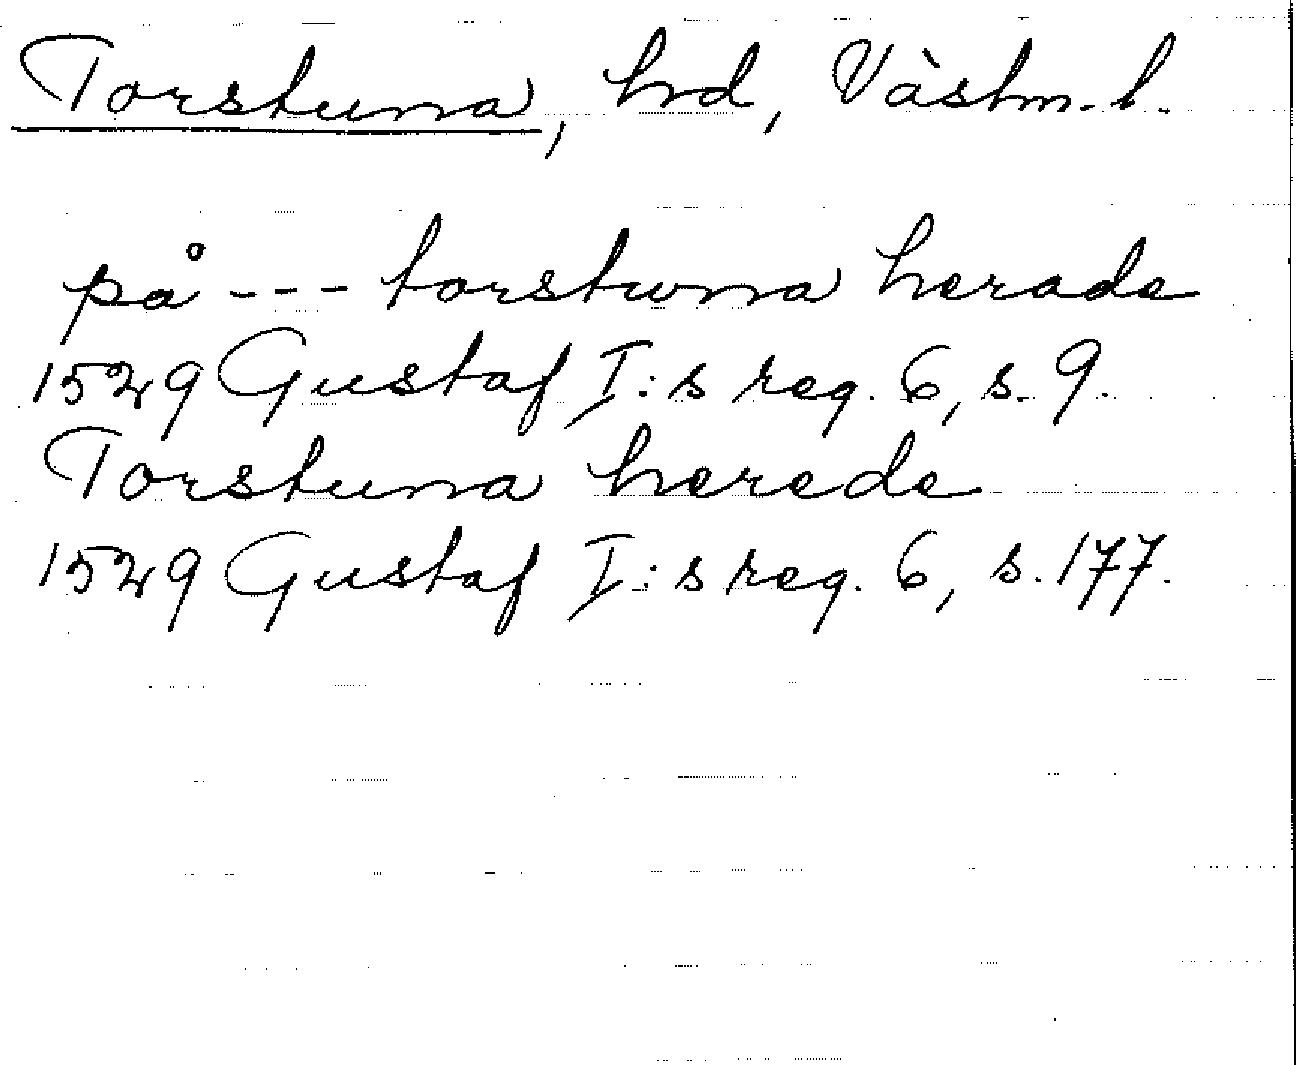 Torstuna, hrd, Västm. l.
på --- torstwna herade
1529 Gustaf I:s reg. 6, s. 9.
Torstuna herede
1529 Gustaf I:s reg. 6, s. 177.